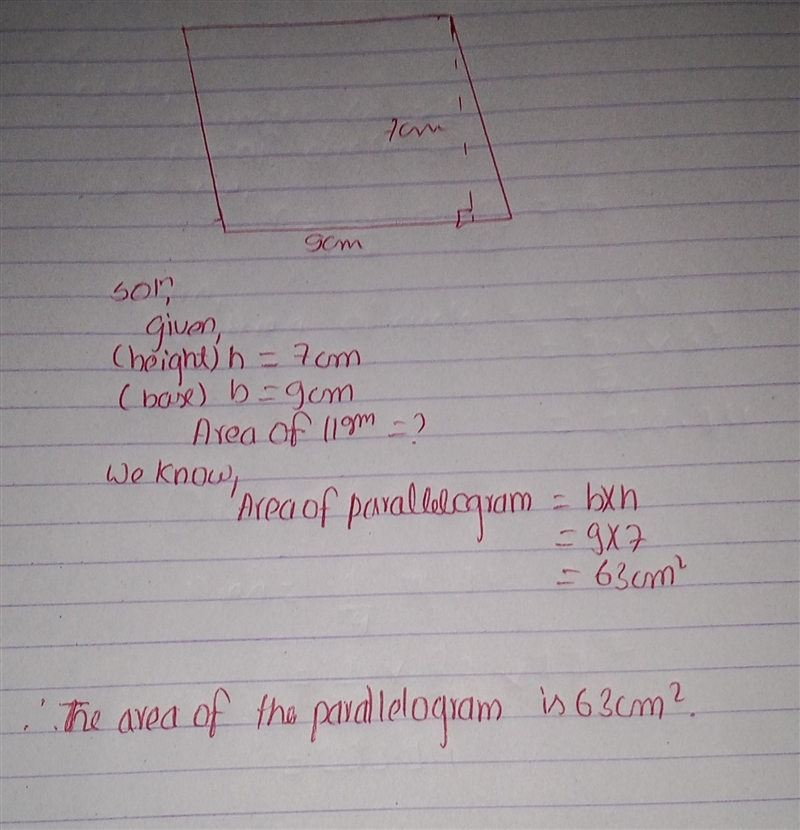 7cm
9cm
Soln,
given,
(height) h = 7cm
(base) b = 9cm
Area of ||gm = ?
We know,
Area of parallelogram = b×h
= 9×7
= 63cm²
∴ The area of the parallelogram is 63cm².